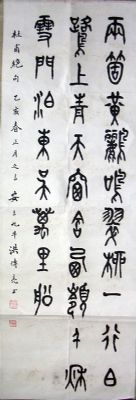 兩箇黃鸝鳴翠柳一行白
鷺上青天窗含西嶺千秋
雪門泊東吳萬里船
杜甫絕句 乙亥春正月之